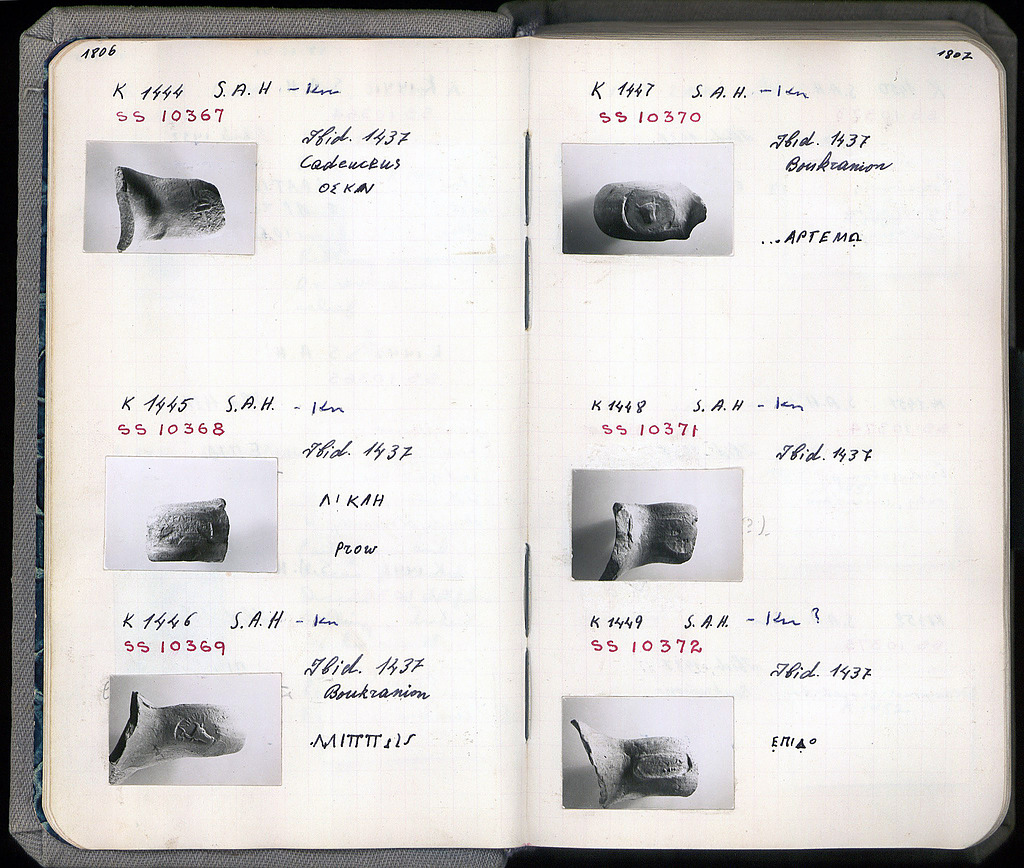 1806
K 1444 S.A.H - Kn
SS 10367
Ibid. 1437
Cadeuceus
ΟΣΚΛΙ
K 1445 S.A.H. - Kn
SS 10368
Ibid. 1437
ΛΙΚΛΗ
Prow
K 1446 S.A.H - Kn
SS 10369
Ibid. 1437
Boukranion
1807
K 1447 S.A.H. - Kn
SS 10370
Ibid. 1437
Boukranion
...ΑΡΤΕΜΩ
K 1448 S.A.H - Kn
SS 10371
Ibid. 1437
K 1449 S.A.H. - Kn ?
SS 10372
Ibid. 1437
ΕΠΙΔΟ